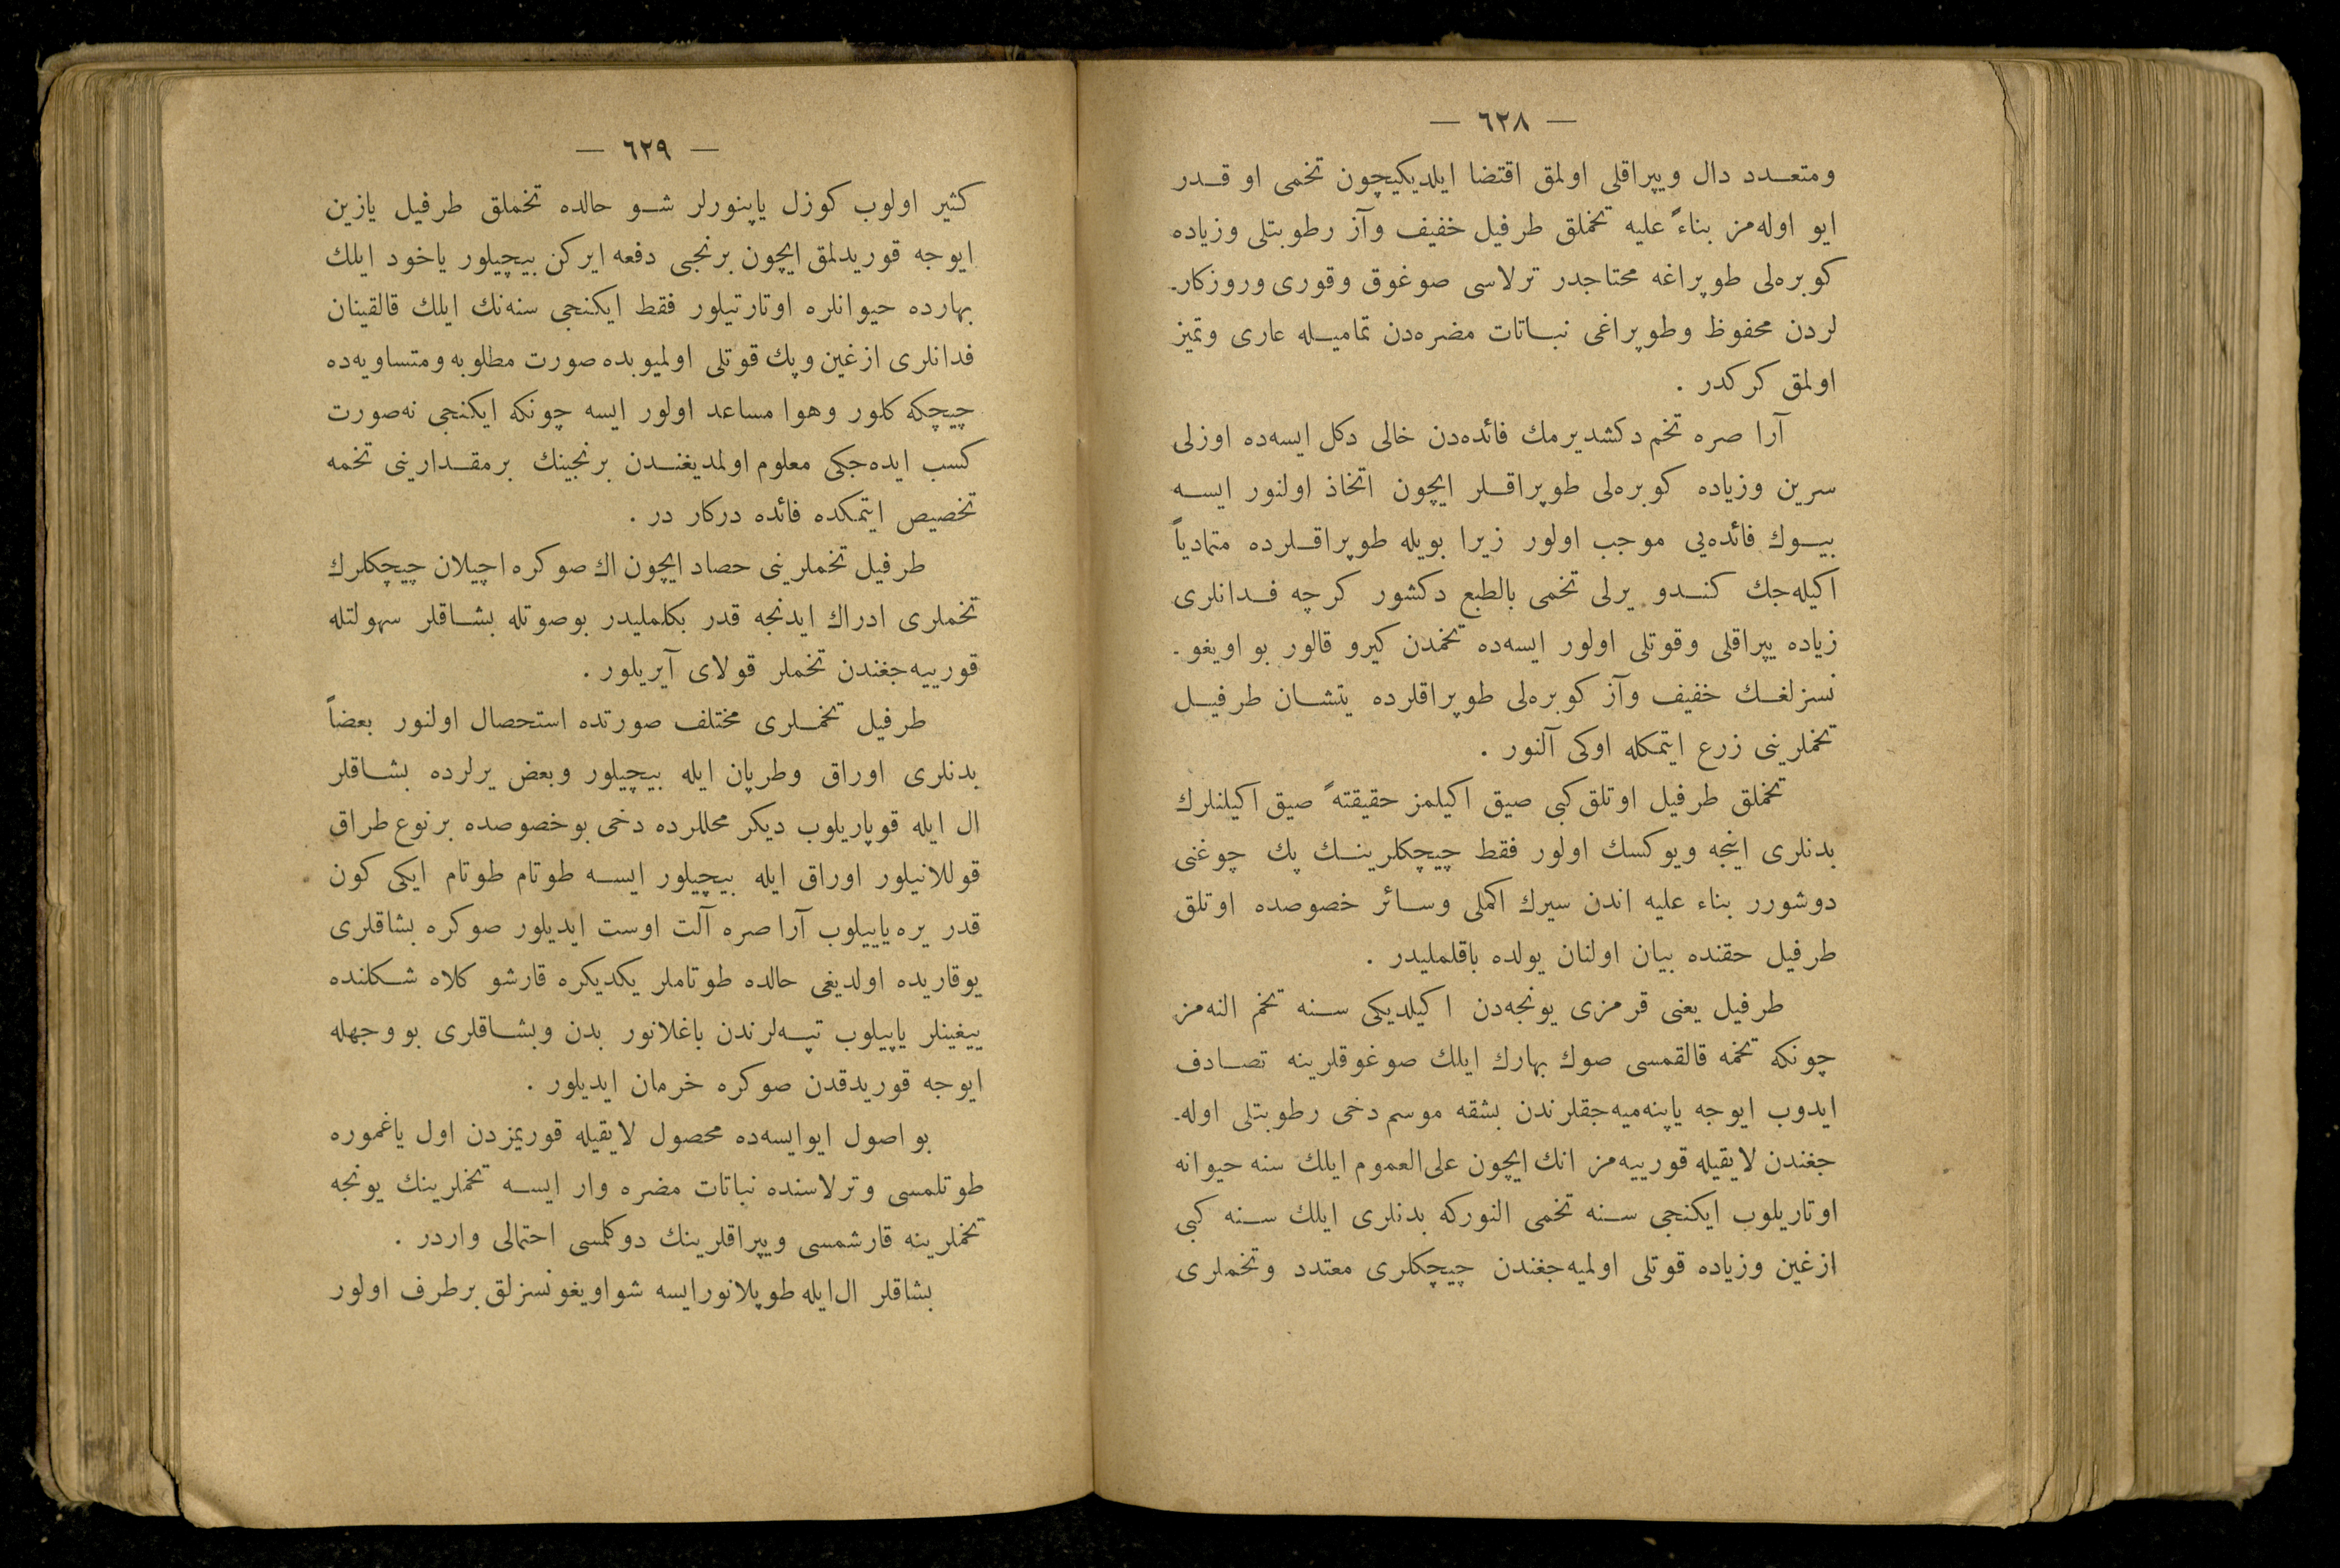 — ٦٢٨ —
ومتعدد دال ويپراقلى اولمق اقتضا ايلديكيچون تخمى او قدر
ايو اوله‌مز بناءً عليه تخملق طرفيل خفيف وآز رطوبتلى وزياده
كوبره‌لى طوپراغه محتاجدر ترلاسى صوغوق وقورى وروزكار-
لردن محفوظ وطوپراغى نباتات مضره‌دن تماميله عارى وتميز
اولمق كركدر .
آرا صره تخم دكشديرمك فائده‌دن خالى دكل ايسه‌ده اوزلى
سرين وزياده كوبره‌لى طوپراقلر ايچون اتخاذ اولنور ايسه
بيوك فائده‌يى موجب اولور زيرا بويله طوپراقلرده متمادياً
اكيله‌جك كندو يرلى تخمى بالطبع دكشور كرچه فدانلرى
زياده يپراقلى وقوتلى اولور ايسه‌ده تخمدن كيرو قالور بو اويغو-
نسزلغك خفيف وآز كوبره‌لى طوپراقلرده يتشان طرفيل
تخملرينى زرع ايتمكله اوكى آلنور .
تخملق طرفيل اوتلق كبى صيق اكيلمز حقيقتهً صيق اكيلنلرك
بدنلرى اينجه ويوكسك اولور فقط چيچكلرينك پك چوغنى
دوشورر بناء عليه اندن سيرك اكملى وسائر خصوصده اوتلق
طرفيل حقنده بيان اولنان يولده باقلمليدر .
طرفيل يعنى قرمزى يونجه‌دن اكيلديكى سنه تخم النه‌مز
چونكه تخمه قالقمسى صوك بهارك ايلك صوغوقلرينه تصادف
ايدوب ايوجه ياپنه‌ميه‌جقلرندن بشقه موسم دخى رطوبتلى اوله-
جغندن لايقيله قورييه‌مز انك ايچون على‌العموم ايلك سنه حيوانه
اوتاريلوب ايكنجى سنه تخمى النوركه بدنلرى ايلك سنه كبى
ازغين وزياده قوتلى اولميه‌جغندن چيچكلرى معتدد وتخملرى
— ٦٢٩ —
كثير اولوب كوزل ياپنورلر شو حالده تخملق طرفيل يازين
ايوجه قوريدلمق ايچون برنجى دفعه ايركن بيچيلور ياخود ايلك
بهارده حيوانلره اوتارتيلور فقط ايكنجى سنه‌نك ايلك قالقينان
فدانلرى ازغين وپك قوتلى اولميوبده صورت مطلوبه ومتساويه‌ده
چيچكه كلور وهوا مساعد اولور ايسه چونكه ايكنجى نه‌صورت
كسب ايده‌جكى معلوم اولمديغندن برنجينك برمقدارينى تخمه
تخصيص ايتمكده فائده دركار در .
طرفيل تخملرينى حصاد ايچون اك صوكره اچيلان چيچكلرك
تخملرى ادراك ايدنجه قدر بكلمليدر بوصوتله بشاقلر سهولتله
قورييه‌جغندن تخملر قولاى آيريلور .
طرفيل تخملرى مختلف صورتده استحصال اولنور بعضاً
بدنلرى اوراق وطرپان ايله بيچيلور وبعض يرلرده بشاقلر
ال ايله قوپاريلوب ديكر محللرده دخى بوخصوصده برنوع طراق
قوللانيلور اوراق ايله بيچيلور ايسه طوتام طوتام ايكى كون
قدر يره ياييلوب آرا صره آلت اوست ايديلور صوكره بشاقلرى
يوقاريده اولديغى حالده طوتاملر يكديكره قارشو كلاه شكلنده
ييغينلر ياپيلوب تپه‌لرندن باغلانور بدن وبشاقلرى بو وجهله
ايوجه قوريدقدن صوكره خرمان ايديلور .
بو اصول ايوايسه‌ده محصول لايقيله قوريمزدن اول ياغموره
طوتلمسى وترلاسنده نباتات مضره وار ايسه تخملرينك يونجه
تخملرينه قارشمسى ويپراقلرينك دوكلمسى احتمالى واردر .
بشاقلر ال‌ايله طوپلانورايسه شواويغونسزلق برطرف اولور